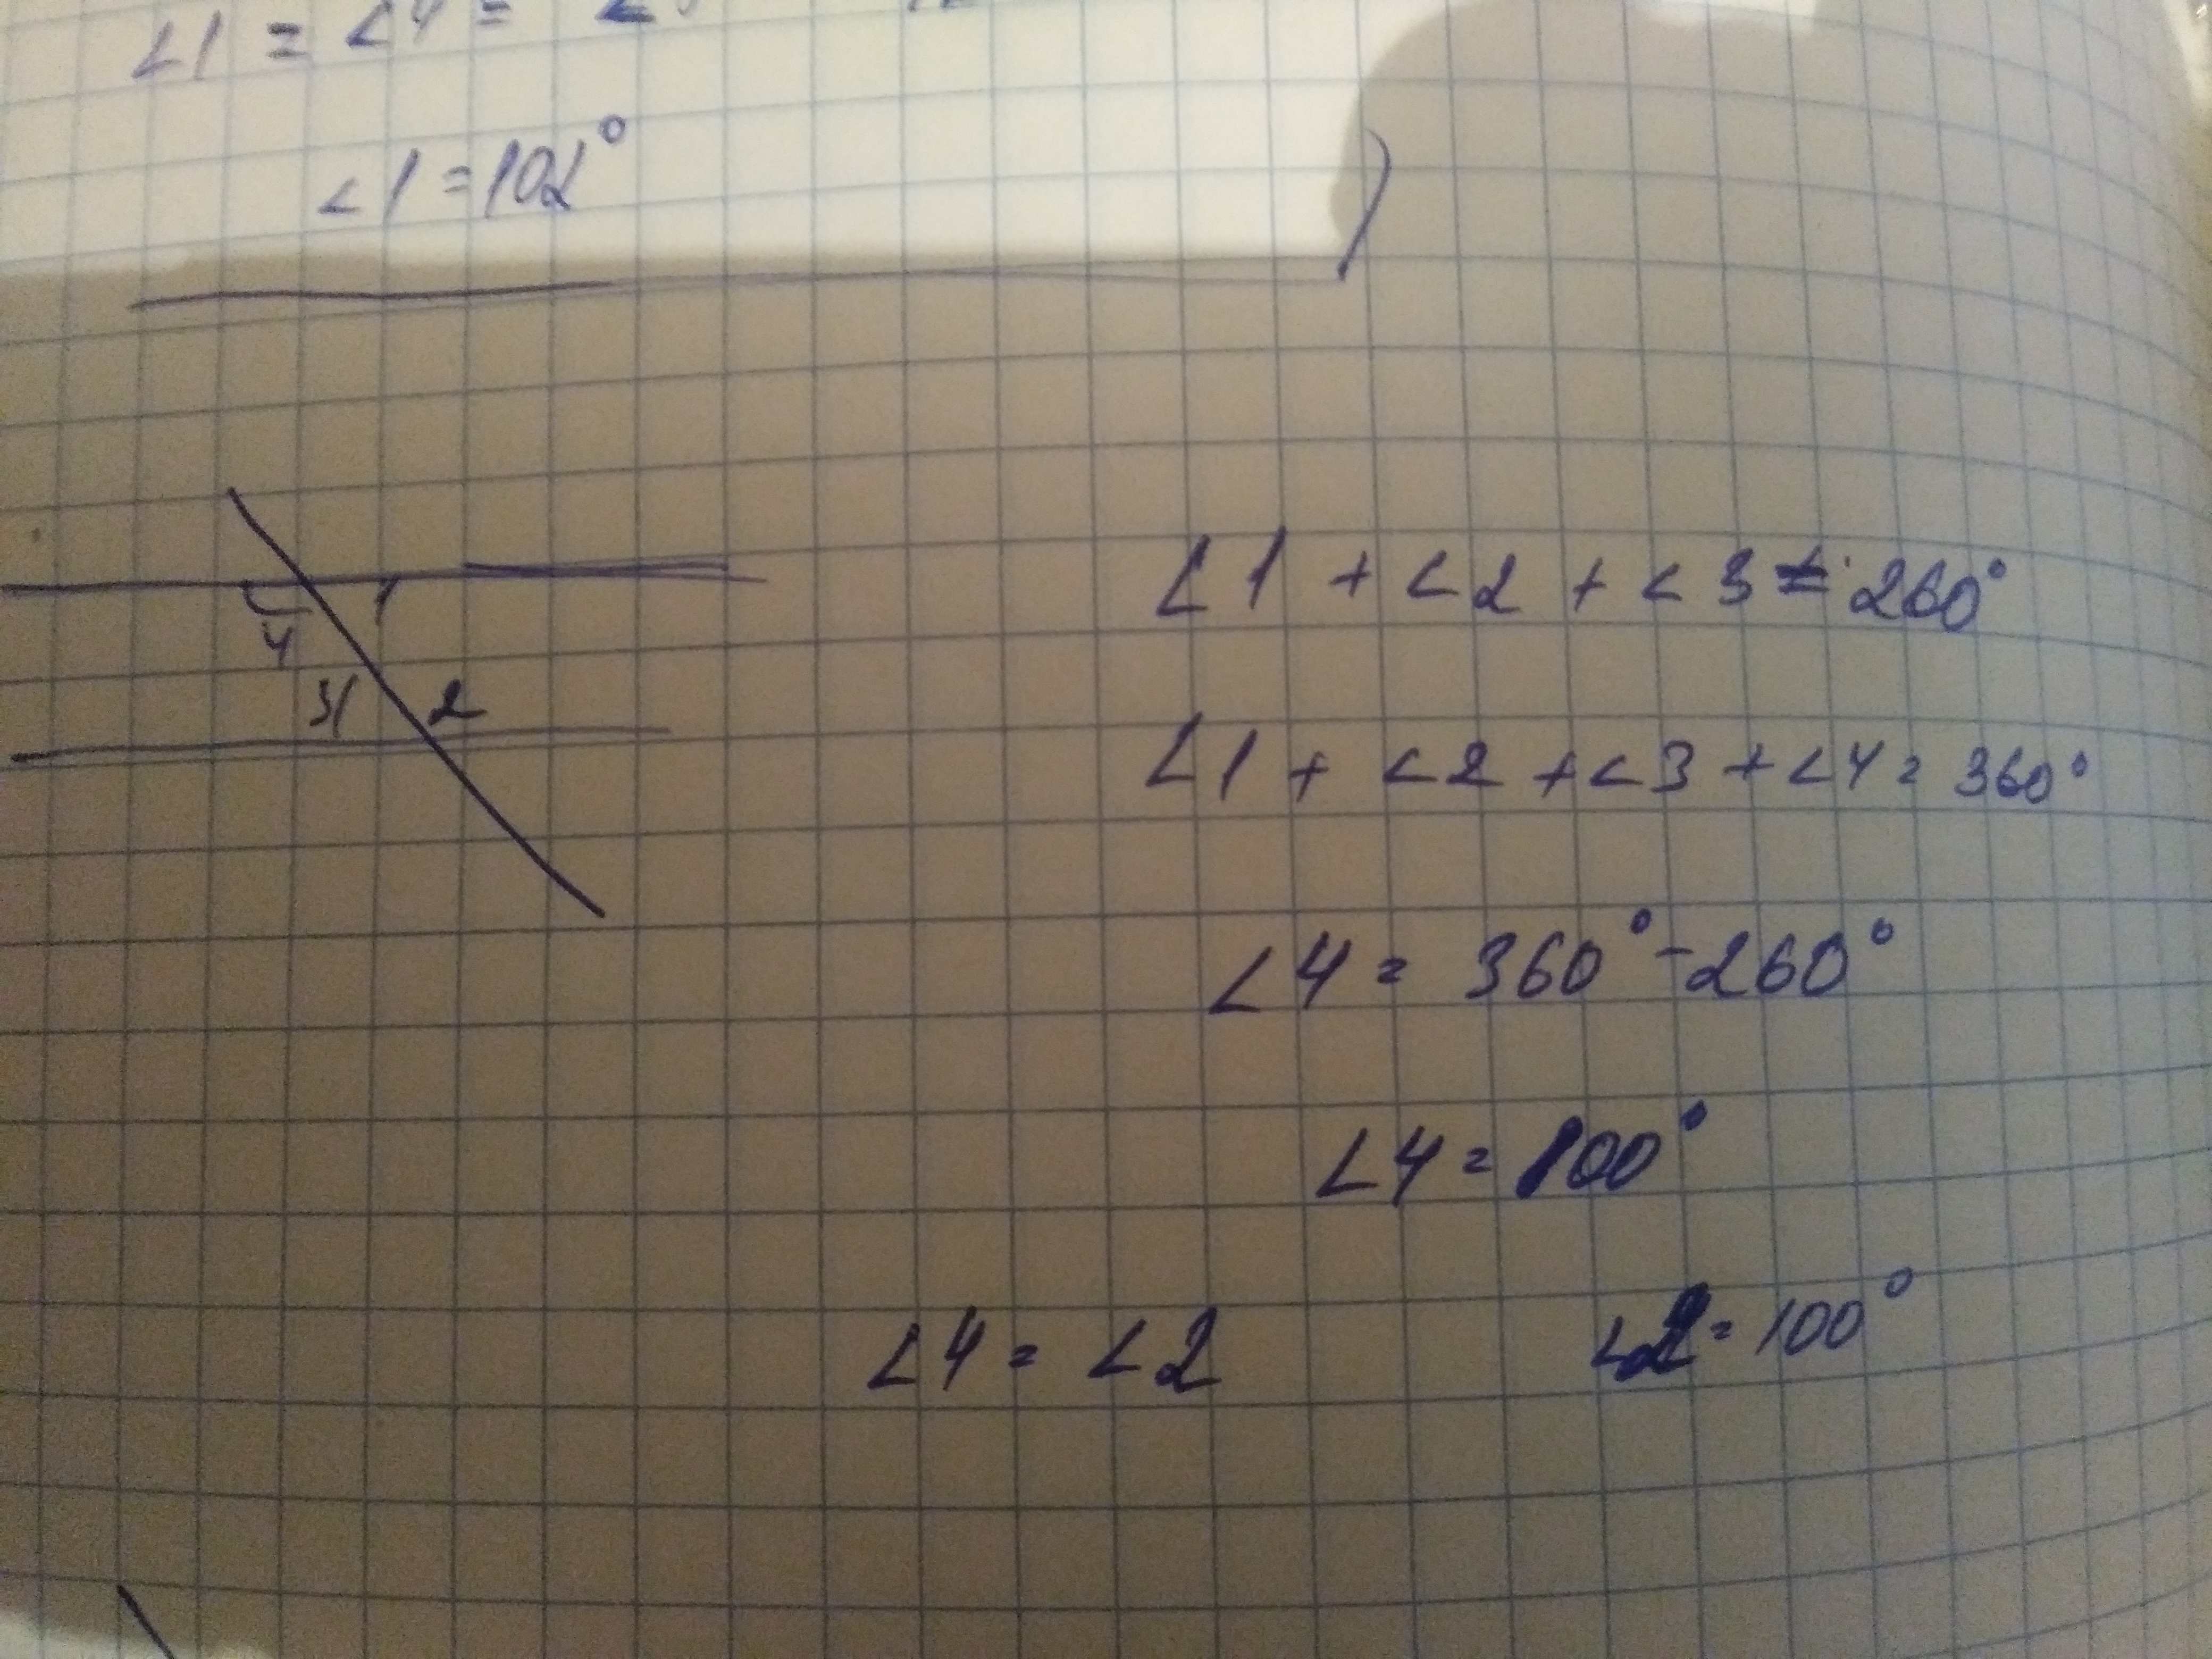 ∠1 = ∠4 =
∠1 = 102°
1
4
3
2
∠1 + ∠2 + ∠3 = 260°
∠1 + ∠2 + ∠3 + ∠4 = 360°
∠4 = 360° - 260°
∠4 = 100°
∠4 = ∠2 ∠2 = 100°